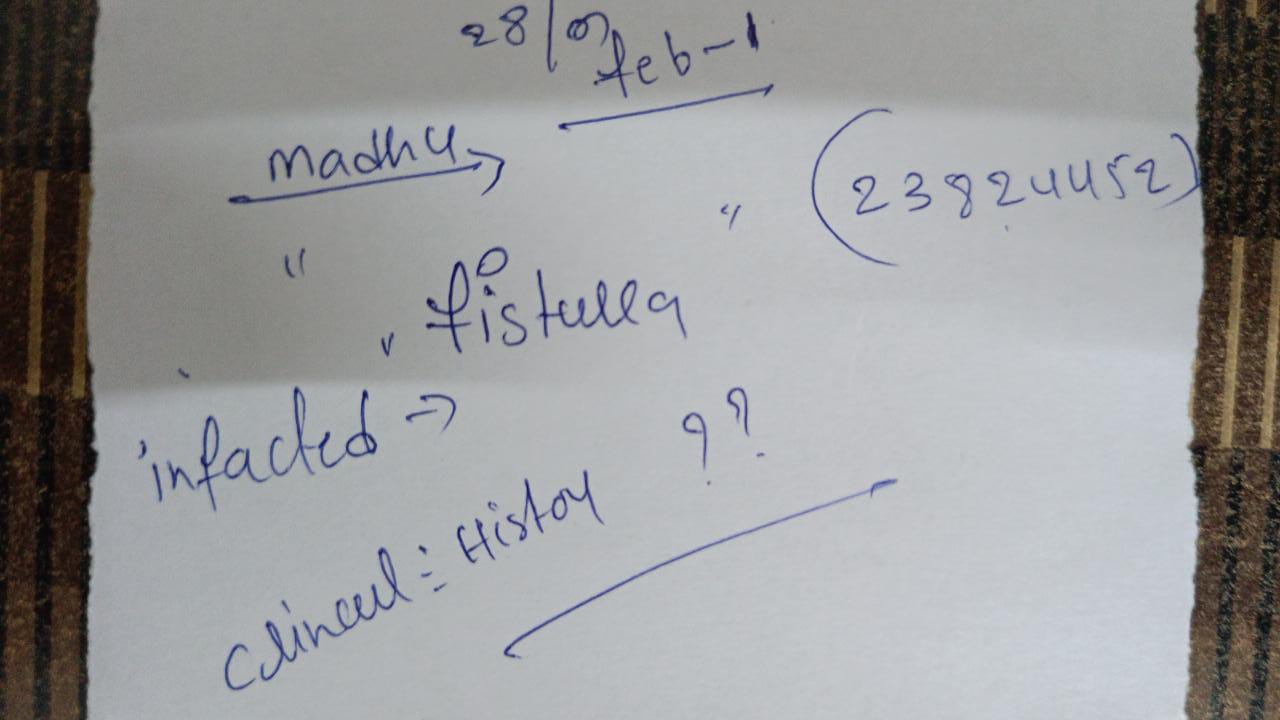 28/09
feb-1
Madhu
" " (23824452)
" fistulla
infacted →
Clinical: History ??